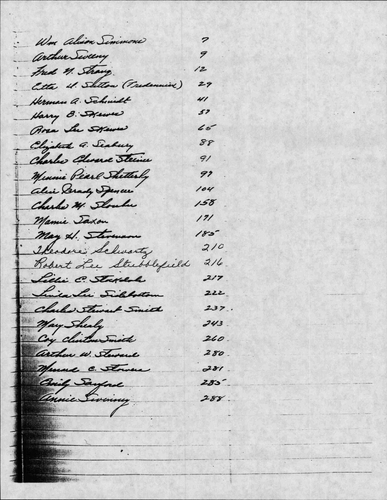 Wm Alison Simmons 7
Arthur Sweeny 9
Fred N. Strang 12
Etta V. Sutton (Fredennick) 29
Herman A. Schmidt 41
Harry B. Skewes 57
Rosa Skewes 65
Elizabeth A. Seabury 88
Charles Edward Steine 91
Minnie Pearl Shetterly 99
Alice Spencer 104
Charles M. 158
Mamie Saxon 171
May H. Stevenson 185
Theodore Schwartz 210
Robert Lee Stubblefield 216
C. 217
Lee Sidbottom 222
Charles Stewart Smith 237
Mary Shealy 243
Coy Clinton Smith 260
Arthur W. Steward 280
C. 281
Emily Sanford 285
Annie Sweeney 288